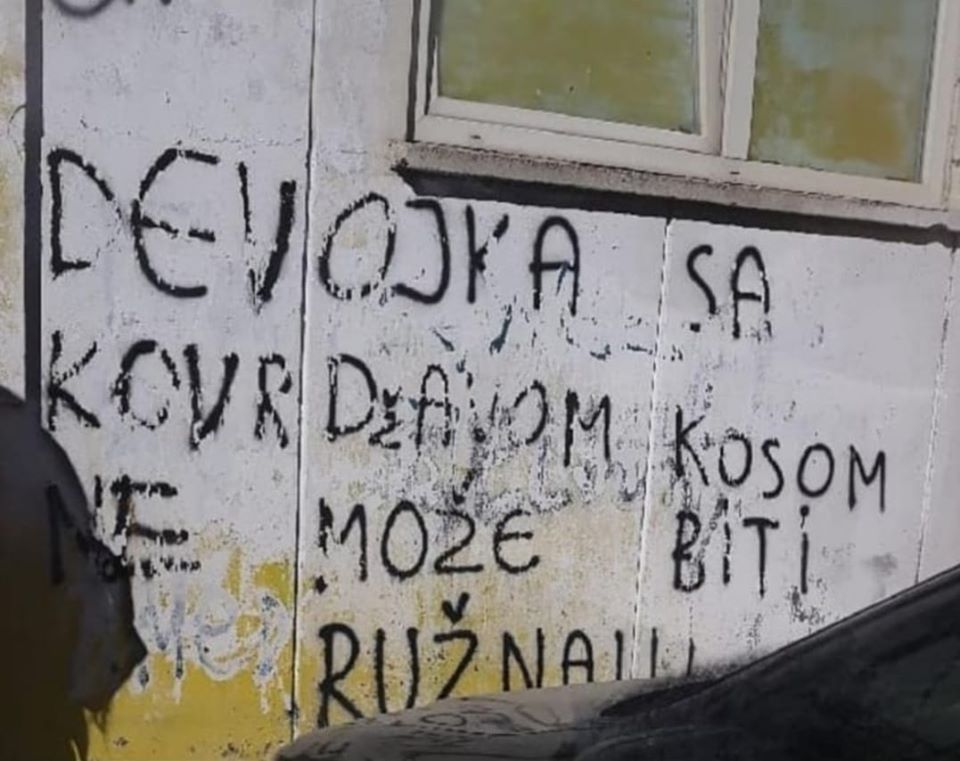 DEVOJKA SA
KOVRDžAVOM KOSOM
NE MOŽE BITI
RUŽNA!!!